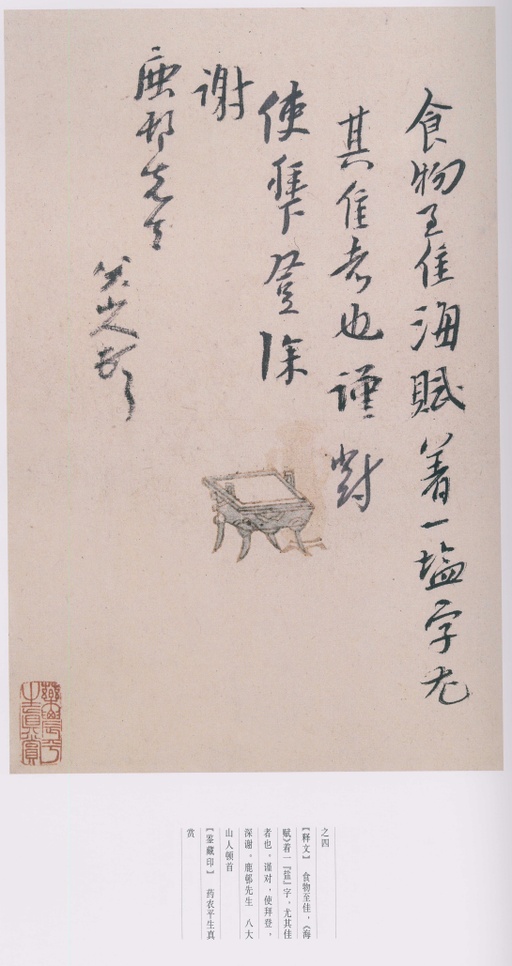 食物至佳海賦着一塩字尤
其佳者也谨對
使拜登深
谢
鹿邨先生
八大山人顿首
药农平生真赏
之四
【释文】 食物至佳，《海
赋》着一『盐』字，尤其佳
者也，谨对，使拜登，
深谢。鹿邨先生 八大
山人顿首
【鉴藏印】 药农平生真
赏